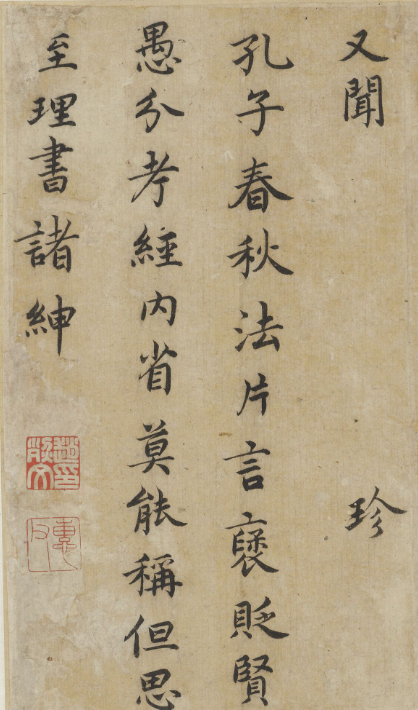 又聞 珍
孔子春秋法片言褒貶賢
愚分考經內省莫能稱但思
至理書諸紳